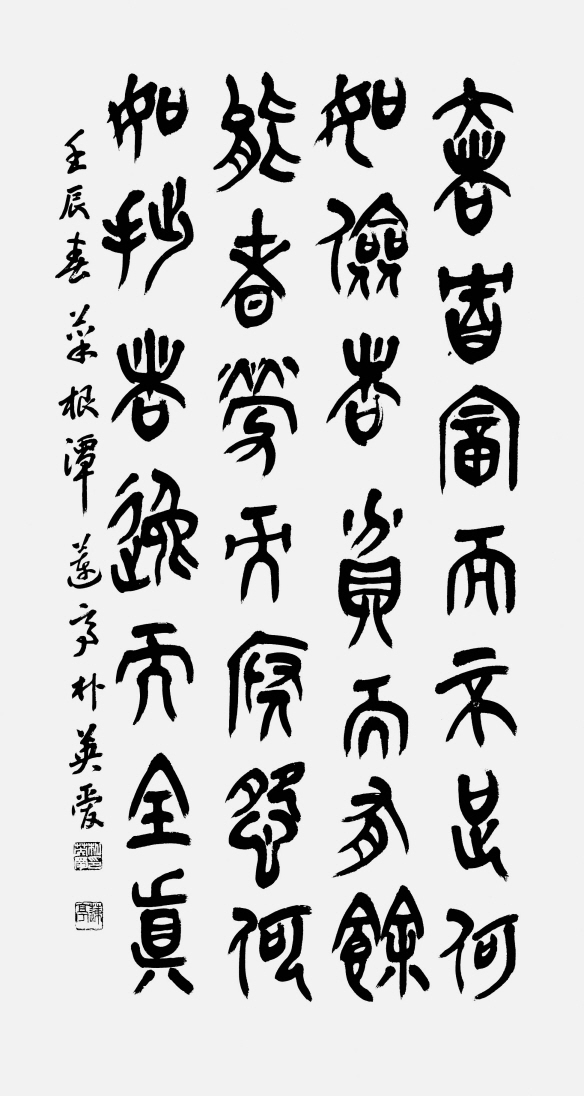 奢者富而不足何
如儉者貧而有餘
能者勞而府怨何
如拙者逸而全眞
壬辰春 菜根潭 蓮亭 朴英愛